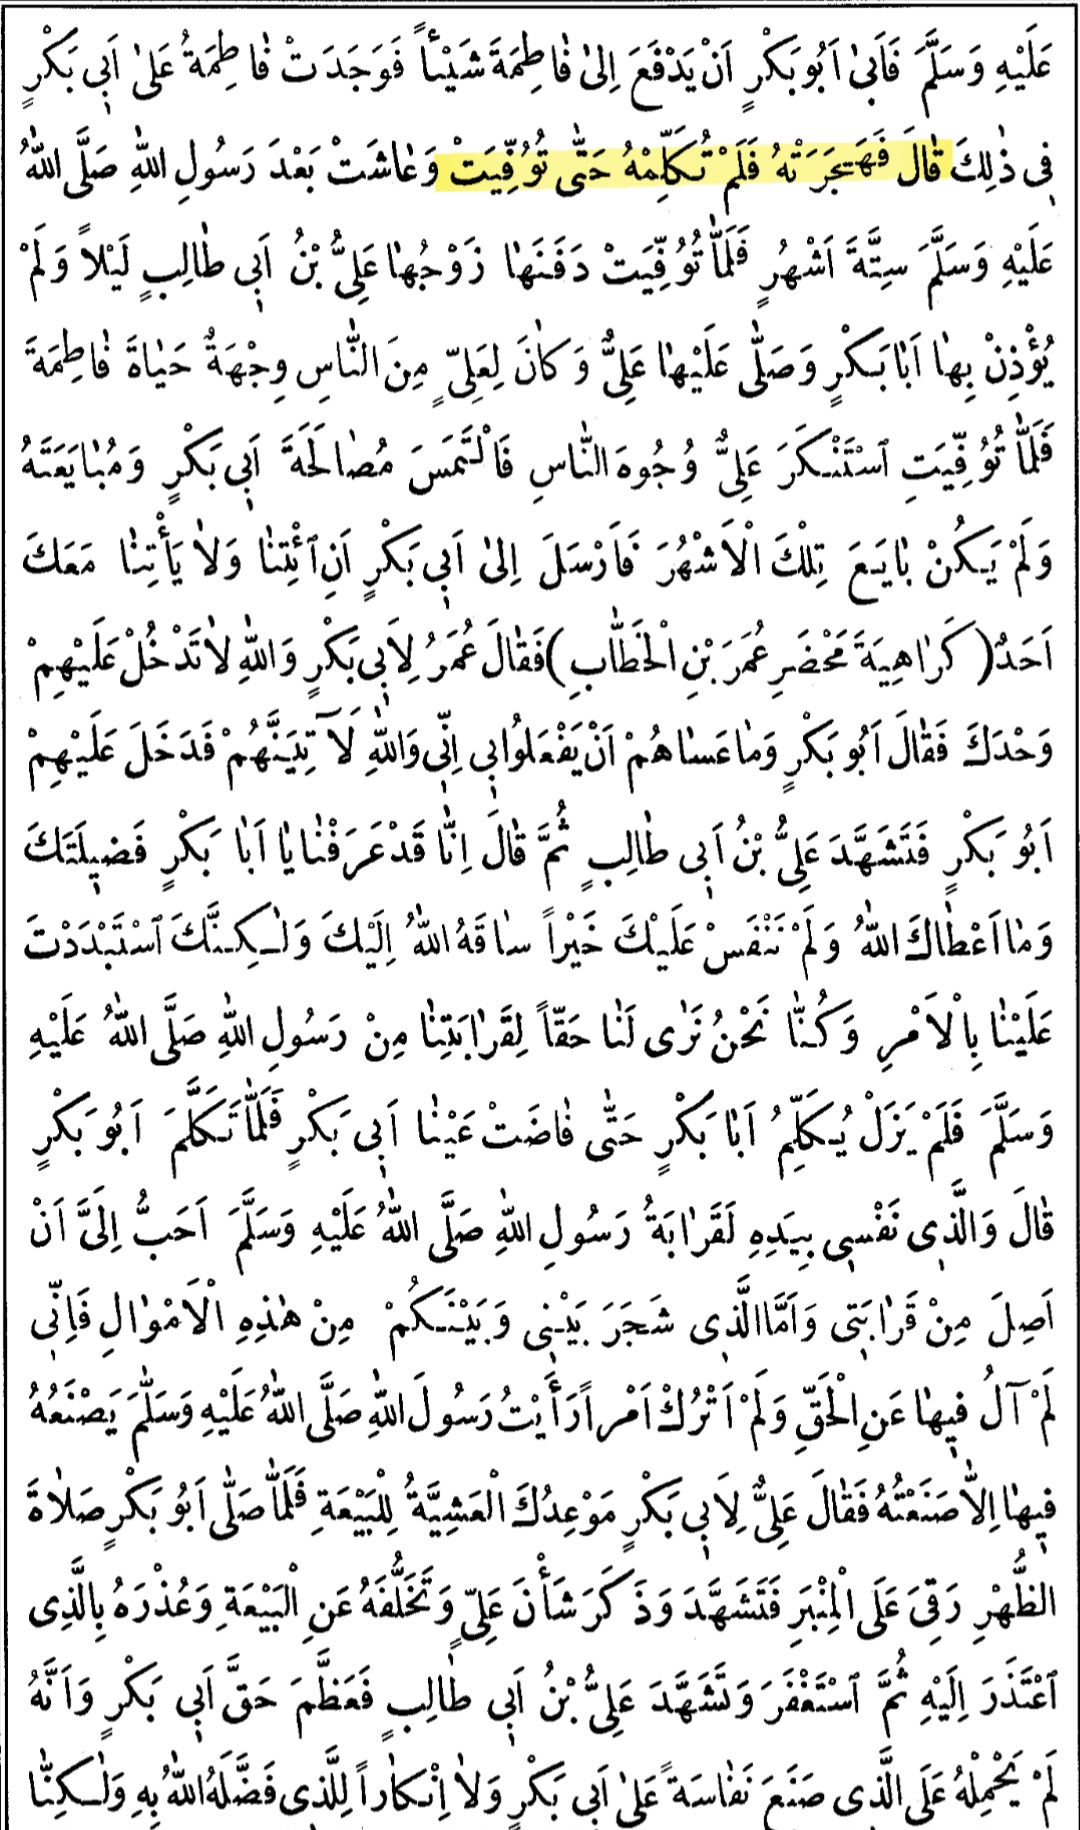 عَلَيْهِ وَسَلَّمَ فَاَبىٰ اَبُو بَكْرٍ اَنْ يَدْفَعَ اِلىٰ فٰاطِمَةَ شَيْئاً فَوَجَدَتْ فٰاطِمَةُ عَلىٰ اَبِي بَكْرٍ
فِي ذٰلِكَ قٰالَ فَهَجَرَتْهُ فَلَمْ تُكَلِّمْهُ حَتّٰى تُوُفِّيَتْ وَعٰاشَتْ بَعْدَ رَسُولِ اللّٰهِ صَلَّى اللّٰهُ
عَلَيْهِ وَسَلَّمَ سِتَّةَ اَشْهُرٍ فَلَمّٰا تُوُفِّيَتْ دَفَنَهٰا زَوْجُهٰا عَلِيُّ بْنُ اَبِي طٰالِبٍ لَيْلاً وَلَمْ
يُؤْذِنْ بِهٰا اَبٰا بَكْرٍ وَصَلّٰى عَلَيْهٰا عَلِيٌّ وَكٰانَ لِعَلِيٍّ مِنَ النّٰاسِ وِجْهَةٌ حَيٰاةَ فٰاطِمَةَ
فَلَمّٰا تُوُفِّيَتِ ٱسْتَنْكَرَ عَلِيٌّ وُجُوهَ النّٰاسِ فَالْتَمَسَ مُصٰالَحَةَ اَبِي بَكْرٍ وَمُبٰايَعَتَهُ
وَلَمْ يَكُنْ بٰايَعَ تِلْكَ الْاَشْهُرَ فَاَرْسَلَ اِلىٰ اَبِي بَكْرٍ اَنِ ٱئْتِنٰا وَلاٰ يَأْتِنٰا مَعَكَ
اَحَدٌ (كَرٰاهِيَةَ مَحْضَرِ عُمَرَ بْنِ الْخَطّٰابِ) فَقٰالَ عُمَرُ لِاَبِي بَكْرٍ وَاللّٰهِ لاٰ تَدْخُلْ عَلَيْهِمْ
وَحْدَكَ فَقٰالَ اَبُو بَكْرٍ وَمٰا عَسٰاهُمْ اَنْ يَفْعَلُوا بِي اِنِّي وَاللّٰهِ لَآتِيَنَّهُمْ فَدَخَلَ عَلَيْهِمْ
اَبُو بَكْرٍ فَتَشَهَّدَ عَلِيُّ بْنُ اَبِي طٰالِبٍ ثُمَّ قٰالَ اِنّٰا قَدْ عَرَفْنٰا يٰا اَبٰا بَكْرٍ فَضِيلَتَكَ
وَمٰا اَعْطٰاكَ اللّٰهُ وَلَمْ نَنْفَسْ عَلَيْكَ خَيْراً سٰاقَهُ اللّٰهُ اِلَيْكَ وَلٰكِنَّكَ ٱسْتَبْدَدْتَ
عَلَيْنٰا بِالْاَمْرِ وَكُنّٰا نَحْنُ نَرٰى لَنٰا حَقّاً لِقَرٰابَتِنٰا مِنْ رَسُولِ اللّٰهِ صَلَّى اللّٰهُ عَلَيْهِ
وَسَلَّمَ فَلَمْ يَزَلْ يُكَلِّمُ اَبٰا بَكْرٍ حَتّٰى فٰاضَتْ عَيْنٰا اَبِي بَكْرٍ فَلَمّٰا تَكَلَّمَ اَبُو بَكْرٍ
قٰالَ وَالَّذِي نَفْسِي بِيَدِهِ لَقَرٰابَةُ رَسُولِ اللّٰهِ صَلَّى اللّٰهُ عَلَيْهِ وَسَلَّمَ اَحَبُّ اِلَيَّ اَنْ
اَصِلَ مِنْ قَرٰابَتِي وَاَمَّا الَّذِي شَجَرَ بَيْنِي وَبَيْنَكُمْ مِنْ هٰذِهِ الْاَمْوٰالِ فَاِنِّي
لَمْ آلُ فِيهٰا عَنِ الْحَقِّ وَلَمْ اَتْرُكْ اَمْراً رَأَيْتُ رَسُولَ اللّٰهِ صَلَّى اللّٰهُ عَلَيْهِ وَسَلَّمَ يَصْنَعُهُ
فِيهٰا اِلاّٰ صَنَعْتُهُ فَقٰالَ عَلِيٌّ لِاَبِي بَكْرٍ مَوْعِدُكَ الْعَشِيَّةُ لِلْبَيْعَةِ فَلَمّٰا صَلّٰى اَبُو بَكْرٍ صَلاٰةَ
الظُّهْرِ رَقِيَ عَلَى الْمِنْبَرِ فَتَشَهَّدَ وَذَكَرَ شَأْنَ عَلِيٍّ وَتَخَلُّفَهُ عَنِ الْبَيْعَةِ وَعُذْرَهُ بِالَّذِي
ٱعْتَذَرَ اِلَيْهِ ثُمَّ ٱسْتَغْفَرَ وَتَشَهَّدَ عَلِيُّ بْنُ اَبِي طٰالِبٍ فَعَظَّمَ حَقَّ اَبِي بَكْرٍ وَاَنَّهُ
لَمْ يَحْمِلْهُ عَلَى الَّذِي صَنَعَ نَفٰاسَةً عَلىٰ اَبِي بَكْرٍ وَلاٰ اِنْكٰاراً لِلَّذِي فَضَّلَهُ اللّٰهُ بِهِ وَلٰكِنّٰا